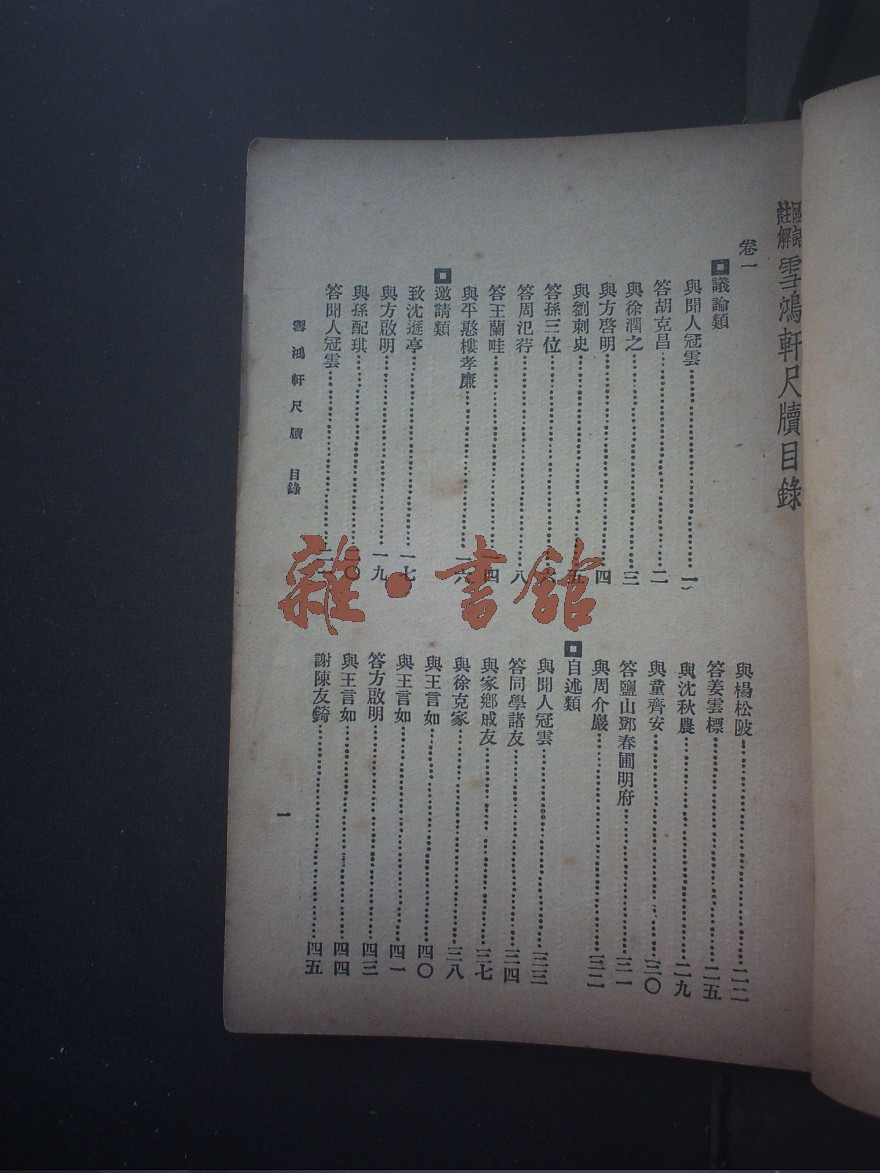 國語註解雪鴻軒尺牘目錄
卷一
議論類
與聞人冠雲 一
答胡克昌 二
與徐潤之 三
與方啓明 四
與劉刺史 五
答孫三位 六
答周氾荇 八
答王蘭畦 一四
與平憨樓孝廉 一六
邀請類
致沈遜亭 一七
與方啟明 一九
與孫配琪 二〇
答聞人冠雲 二一
與楊松陂 二二
答姜雲標 二五
與沈秋農 二九
與童齊安 三〇
答鹽山鄧春圃明府 三一
與周介巖 三二
自述類
與聞人冠雲 三三
答同學諸友 三四
與家鄉戚友 三七
與徐克家 三八
與王言如 四〇
與王言如 四一
答方啟明 四三
與王言如 四四
謝陳友錡 四五
雪鴻軒尺牘 目錄
一
雜·書館